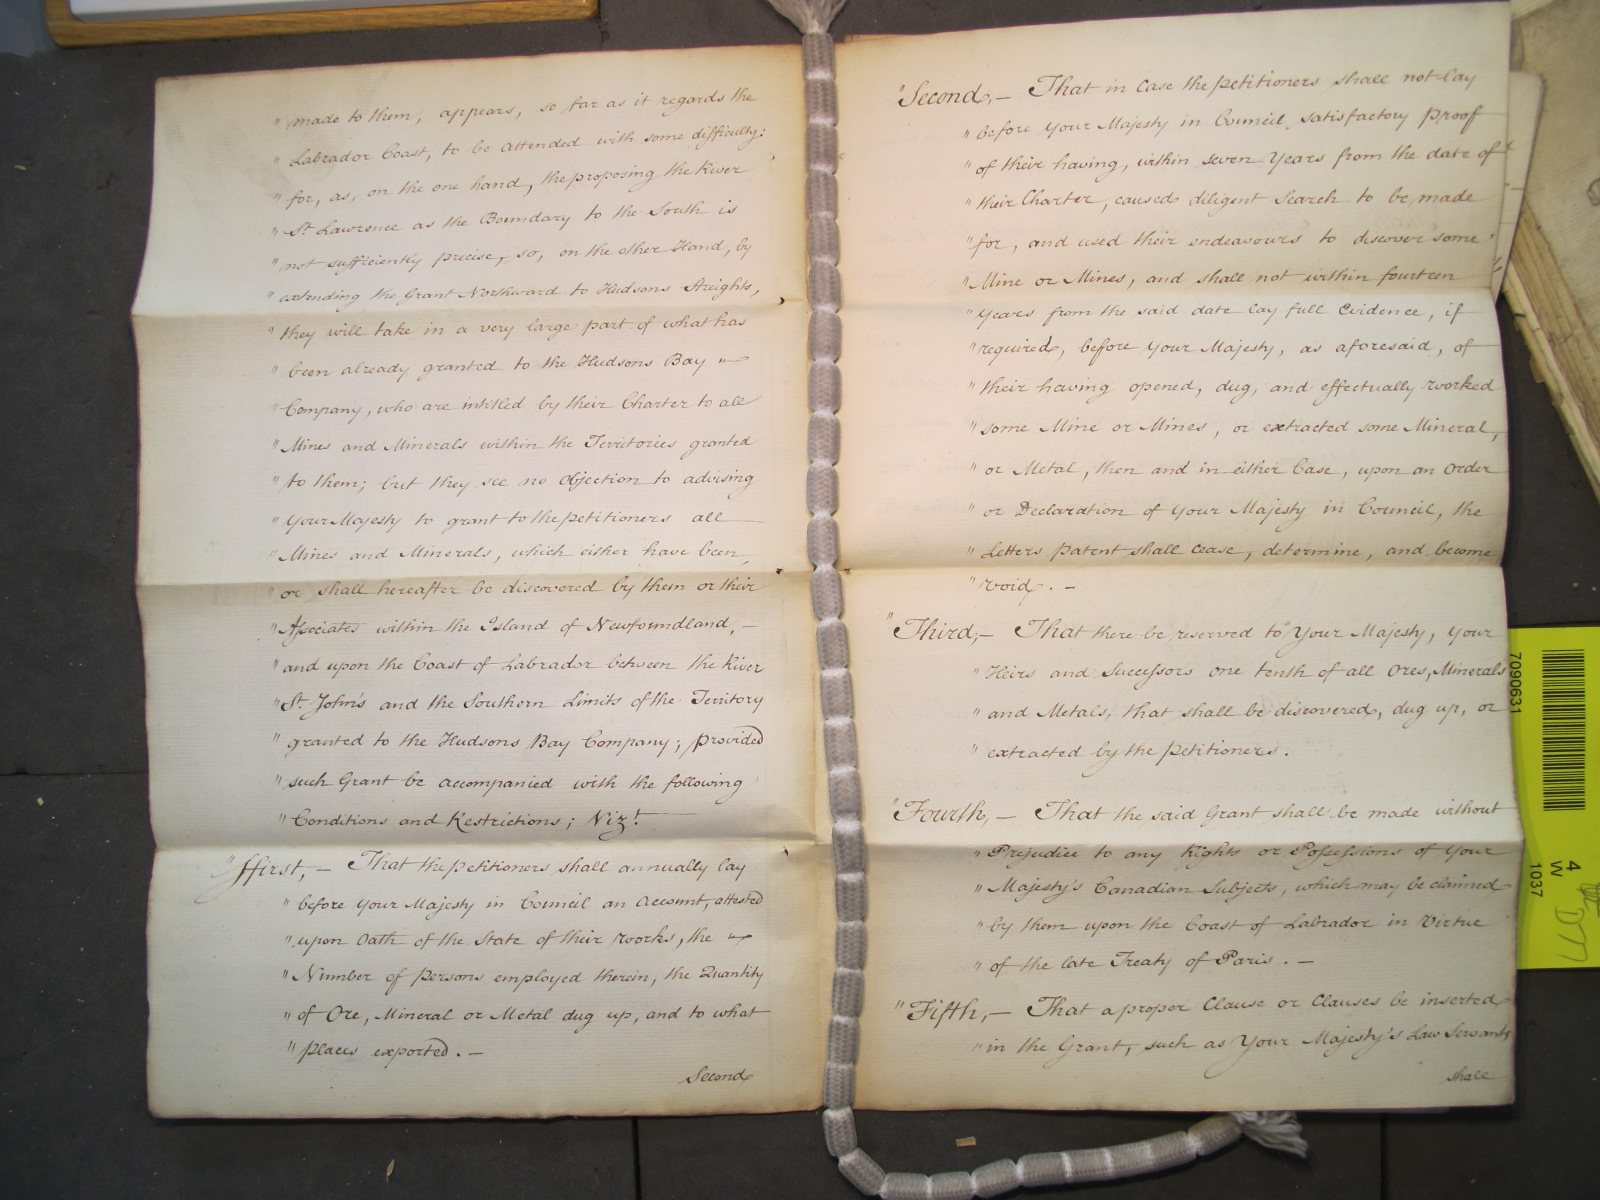 " made to them, appears, so far as it regards the
" Labrador Coast, to be attended with some difficulty:
" for, as, on the one hand, the proposing the River
" St. Lawrence as the Boundary to the South is
" not sufficiently precise, so, on the other Hand, by
" extending the Grant Northward to Hudsons Streights,
" they will take in a very large part of what has
" been already granted to the Hudsons Bay
" Company, who are intitled by their Charter to all
" Mines and Minerals within the Territories granted
" to them; but they see no Objection to advising
" Your Majesty to grant to the petitioners all
" Mines and Minerals, which either have been,
" or shall hereafter be discovered by them or their
" Associates within the Island of Newfoundland, —
" and upon the Coast of Labrador between the River
" St. John's and the Southern Limits of the Territory
" granted to the Hudsons Bay Company; provided
" such Grant be accompanied with the following
" Conditions and Restrictions; Vizt.
" ffirst, — That the petitioners shall annually lay
" before Your Majesty in Council an Account, attested
" upon Oath of the State of their works, the
" Number of persons employed therein, the Quantity
" of Ore, Mineral or Metal dug up, and to what
" places exported. —
Second
" Second, — That in Case the petitioners shall not lay
" before Your Majesty in Council satisfactory proof
" of their having, within seven Years from the date of
" their Charter, caused diligent Search to be made
" for, and used their endeavours to discover some
" Mine or Mines, and shall not within fourteen
" Years from the said date lay full Evidence, if
" required, before Your Majesty, as aforesaid, of
" their having opened, dug, and effectually worked
" some Mine or Mines, or extracted some Mineral,
" or Metal, then and in either Case, upon an Order
" or Declaration of Your Majesty in Council, the
" Letters patent shall cease, determine, and become
" void. —
" Third, — That there be reserved to Your Majesty, Your
" Heirs and Successors one tenth of all Ores, Minerals
" and Metals, that shall be discovered, dug up, or
" extracted by the petitioners.
" Fourth, — That the said Grant shall be made without
" Prejudice to any Rights or Possessions of Your
" Majesty's Canadian Subjects, which may be claimed
" by them upon the Coast of Labrador in Virtue
" of the late Treaty of Paris. —
" Fifth, — That a proper Clause or Clauses be inserted
" in the Grant, such as Your Majesty's Law Servants
shall
7090631
4
W
1037